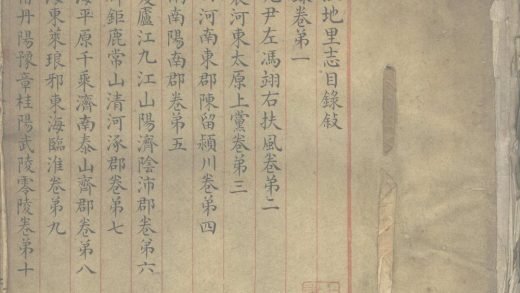 地里志目錄敍
卷第一
尹左馮翊右扶風卷第二
農河東太原上黨卷第三
河南東郡陳留潁川卷第四
南南陽南郡卷第五
廬江九江山陽濟陰沛郡卷第六
鉅鹿常山清河涿郡卷第七
海平原千乘濟南泰山齊郡卷第八
東萊琅邪東海臨淮卷第九
丹陽豫章桂陽武陵零陵卷第十